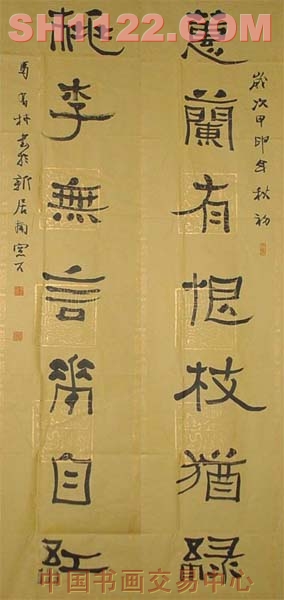 SH1122.COM
歲次甲申年秋初
蕙蘭有恨枝猶綠
桃李無言花自紅
書於新居南窗下
中国书画交易中心